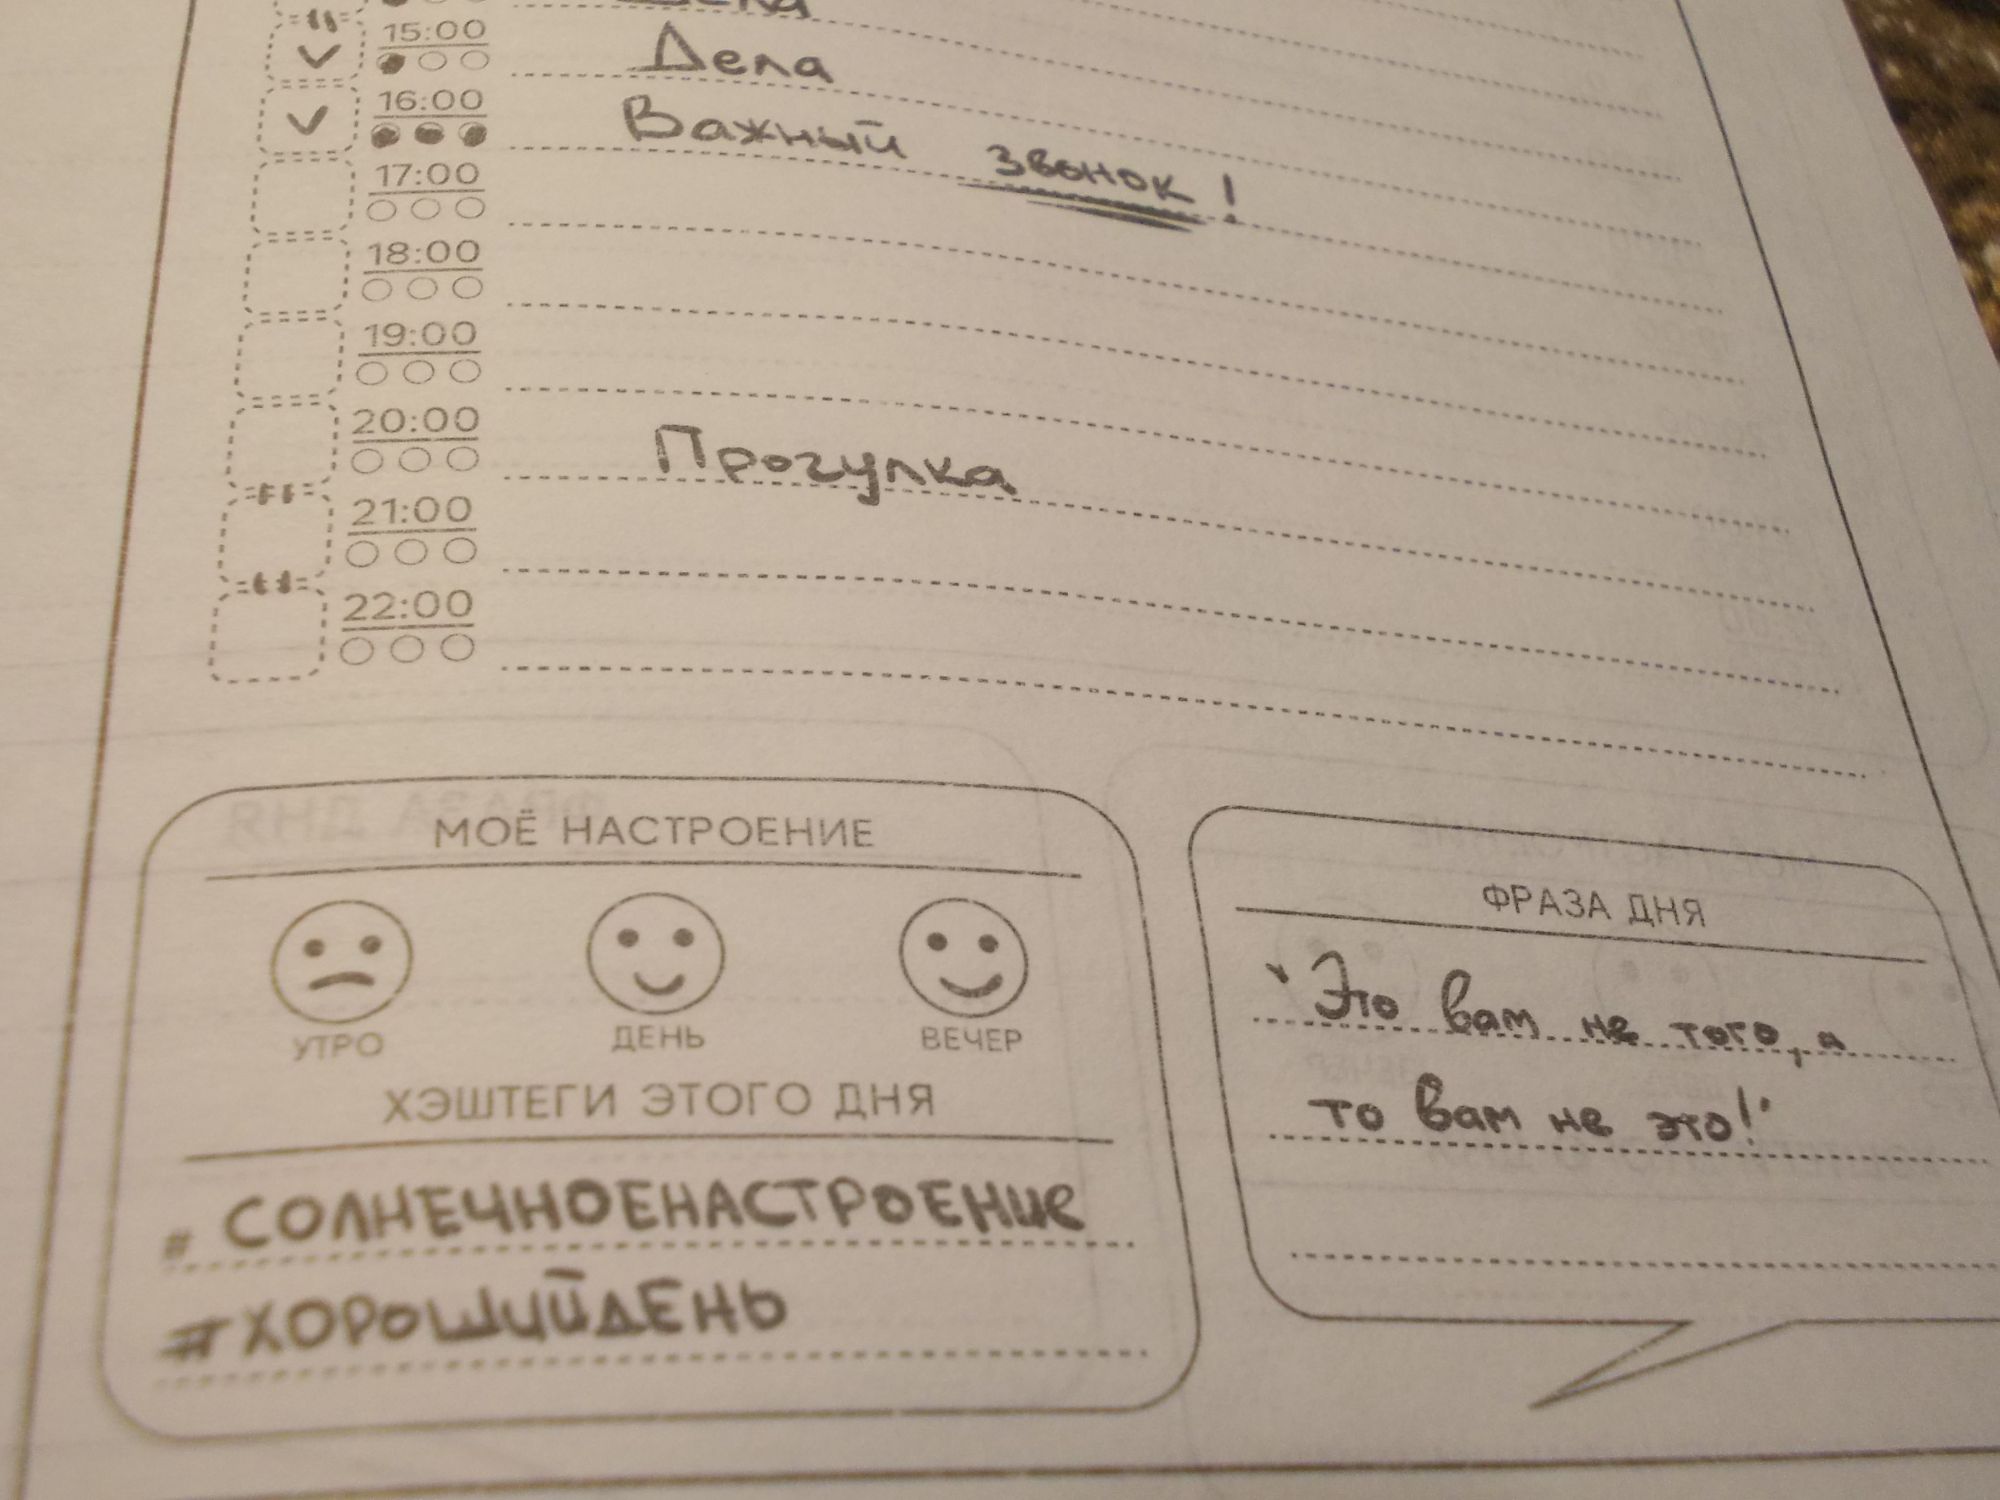 15:00 Дела
16:00 Важный звонок!
17:00
18:00
19:00
20:00 Прогулка
21:00
22:00
МОЁ НАСТРОЕНИЕ
УТРО ДЕНЬ ВЕЧЕР
ХЭШТЕГИ ЭТОГО ДНЯ
# СОЛНЕЧНОЕНАСТРОЕНИЕ
#ХОРОШИЙДЕНЬ
ФРАЗА ДНЯ
"Это вам не того, а
то вам не это!"